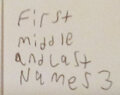 First
middle
and Last
Names 3